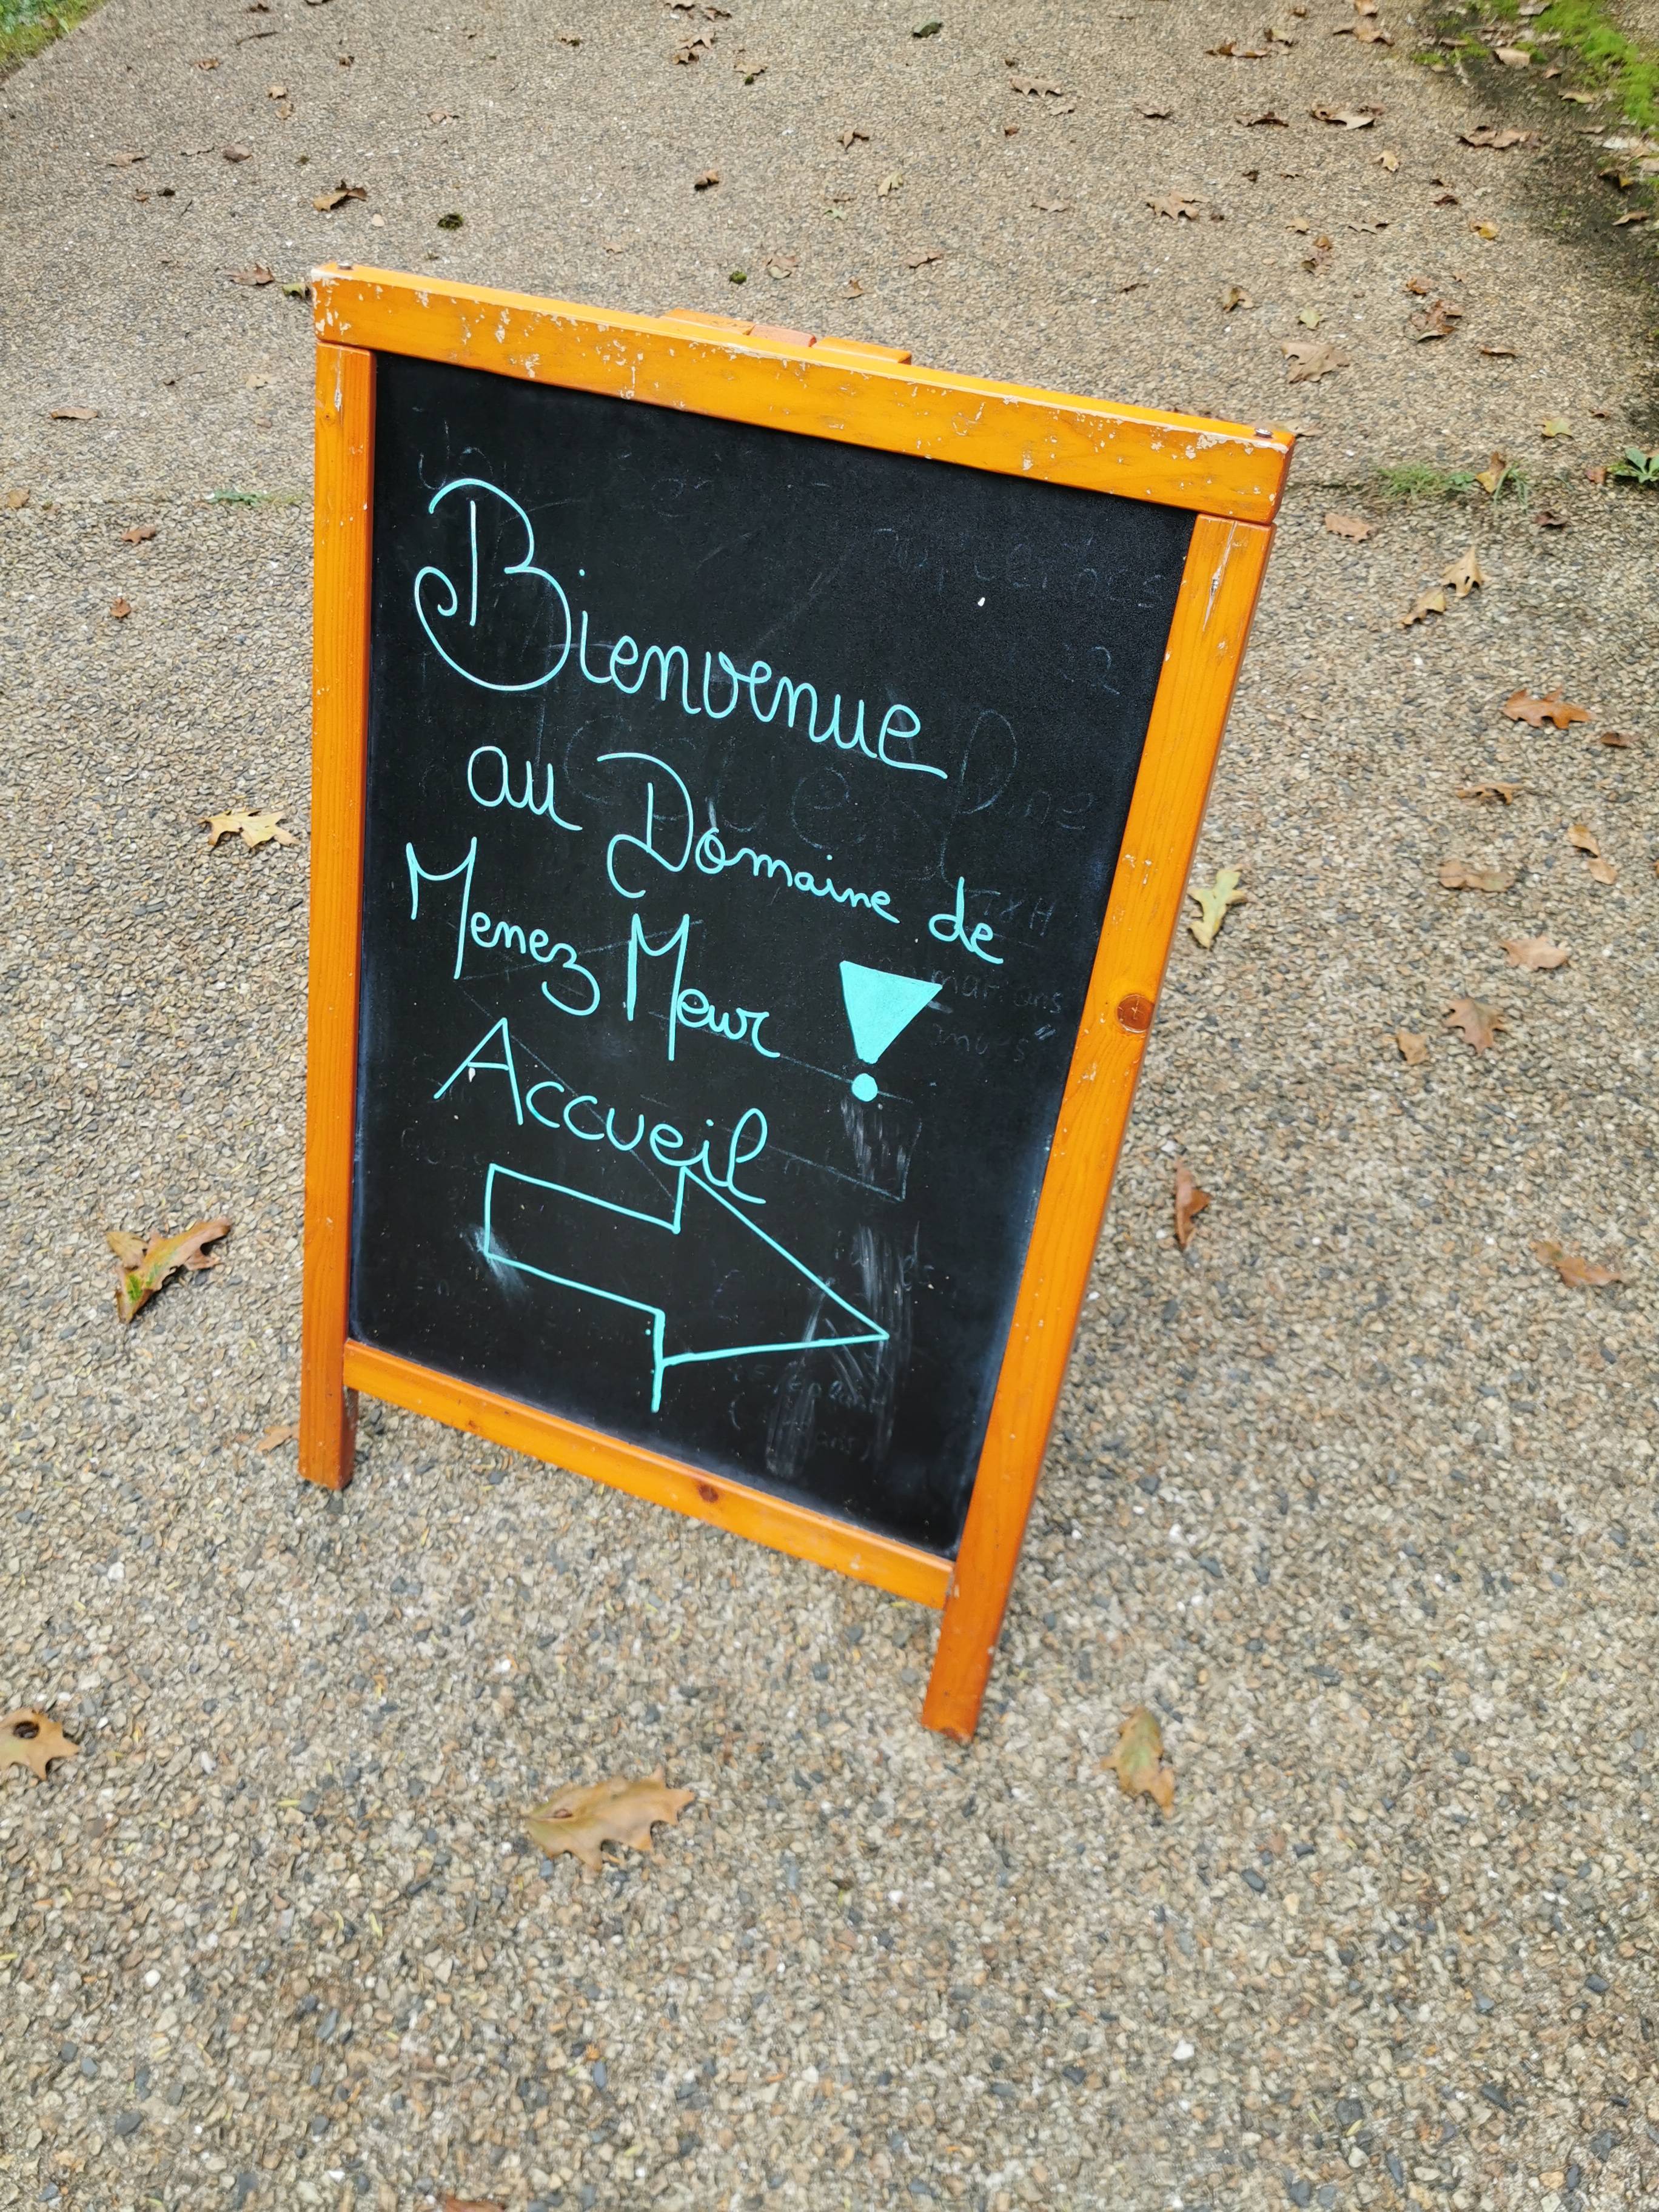 Bienvenue
au Domaine de
Menez Meur !
Accueil